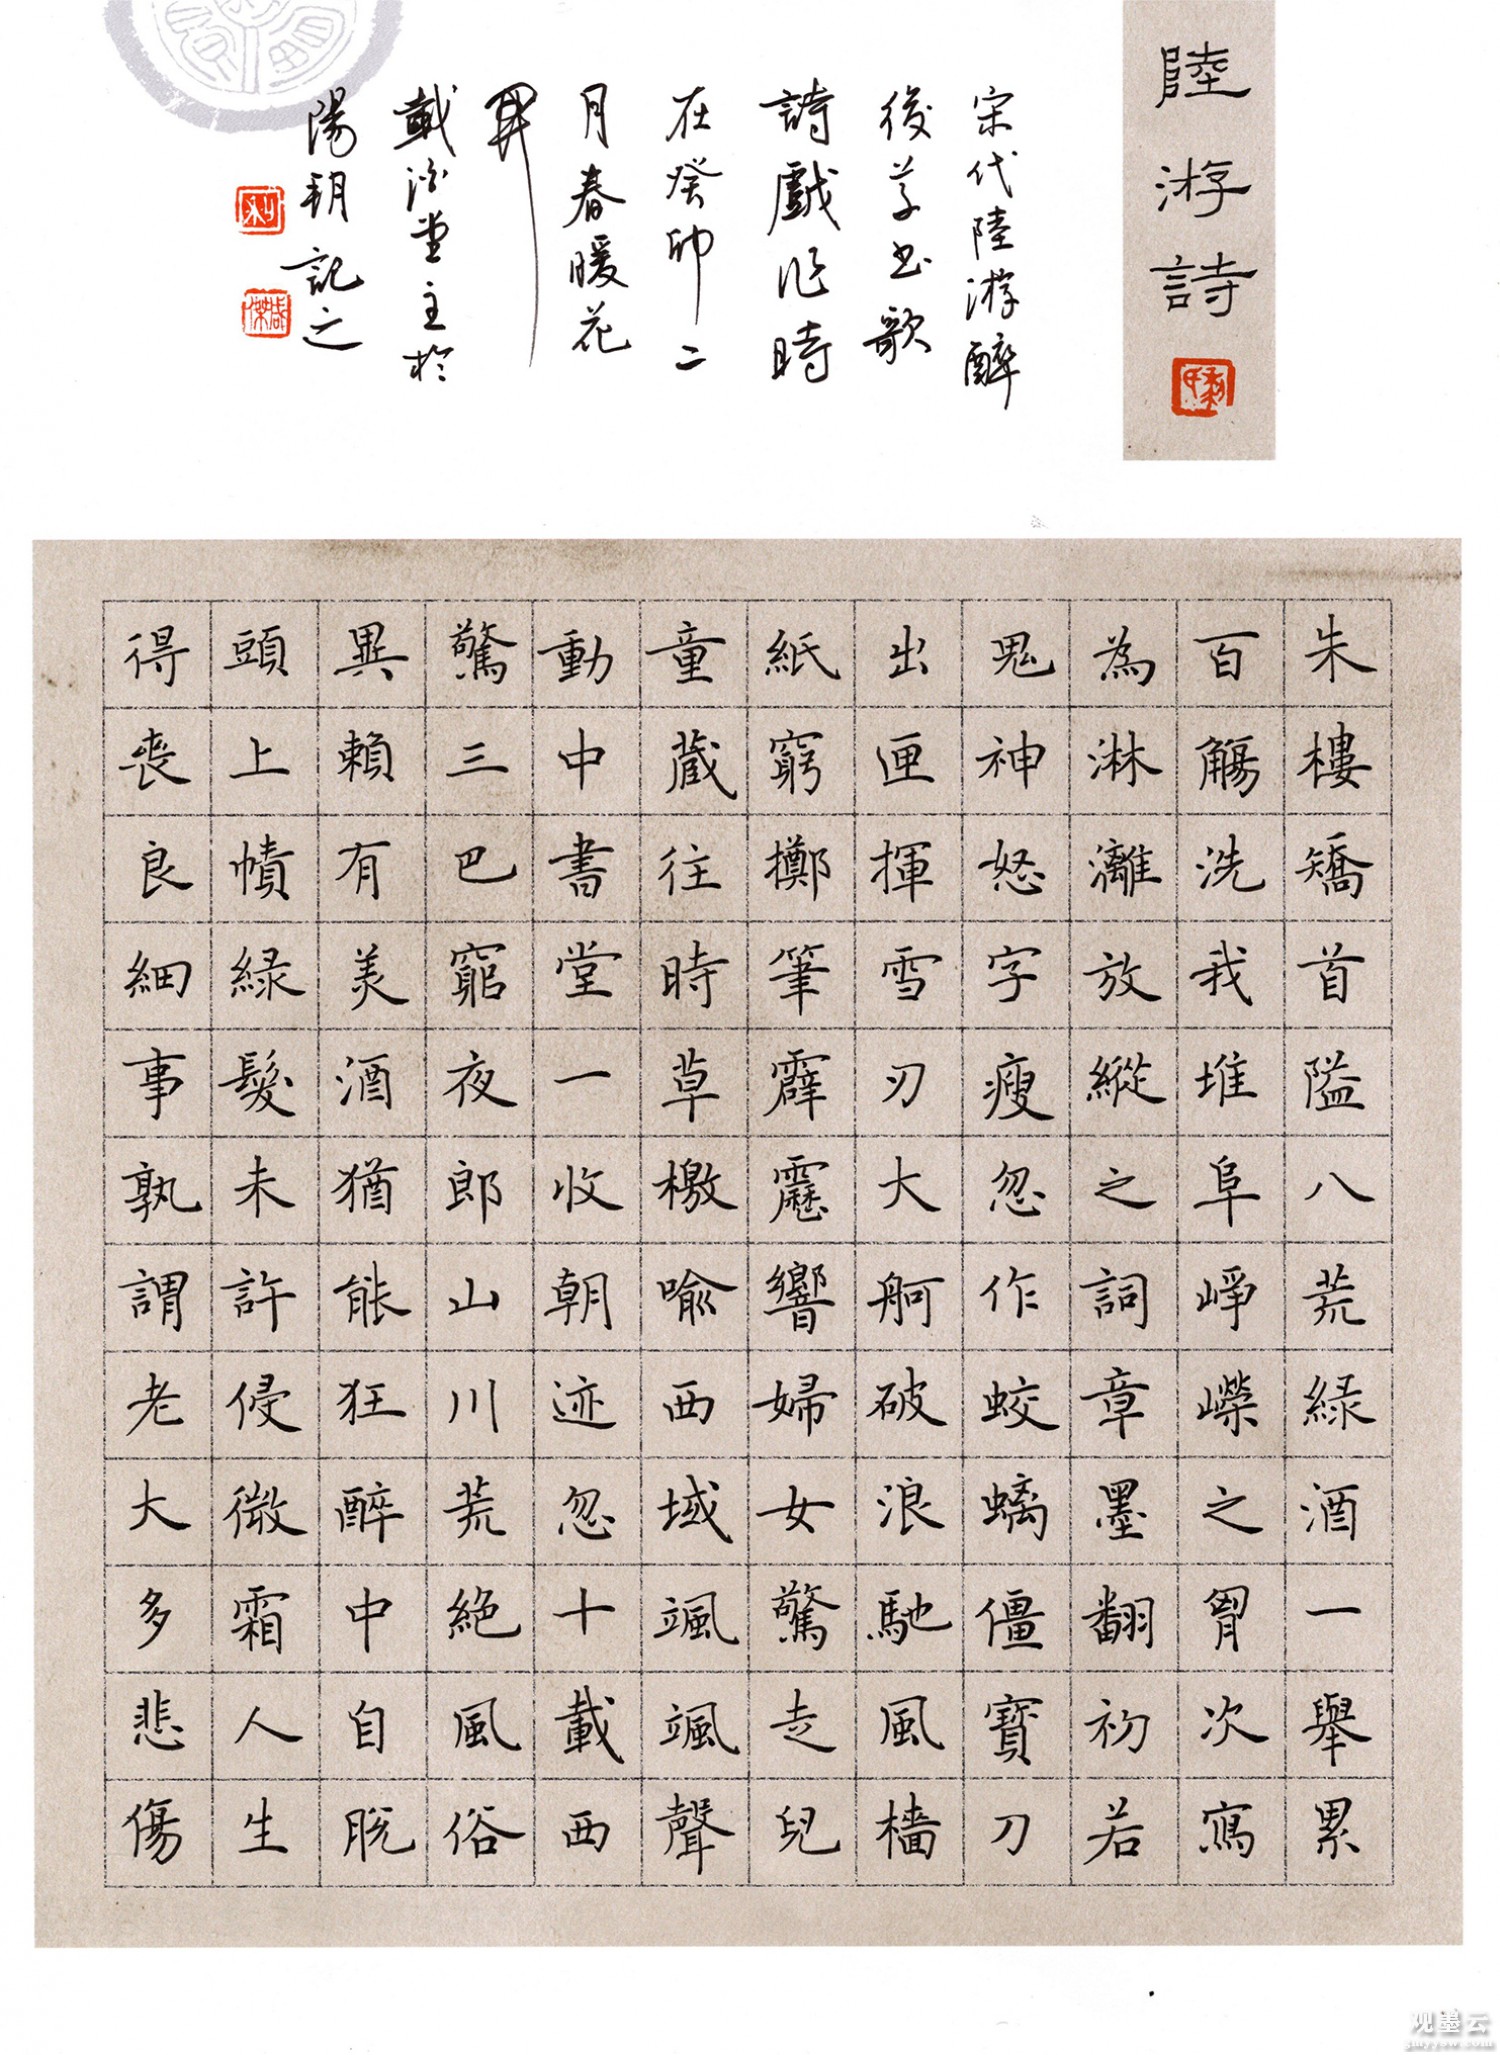 陸游詩
宋代陸游醉
後草書歌
詩戲作時
在癸卯二
月春暖花
開
載酒堂主於
陽朔記之
朱樓矯首隘八荒綠酒一舉累
百觴洗我堆阜崢嶸之胷次寫
為淋漓放縱之詞章墨翻初若
鬼神怒字瘦忽作蛟螭僵寶刀
出匣揮雪刃大舸破浪馳風檣
紙窮擲筆霹靂響婦女驚走兒
童藏往時草檄喻西域颯颯聲
動中書堂一收朝迹忽十載西
驚三巴窮夜郎山川荒絕風俗
異賴有美酒猶能狂醉中自脫
頭上幘綠髮未許侵微霜人生
得喪良細事孰謂老大多悲傷
观墨云